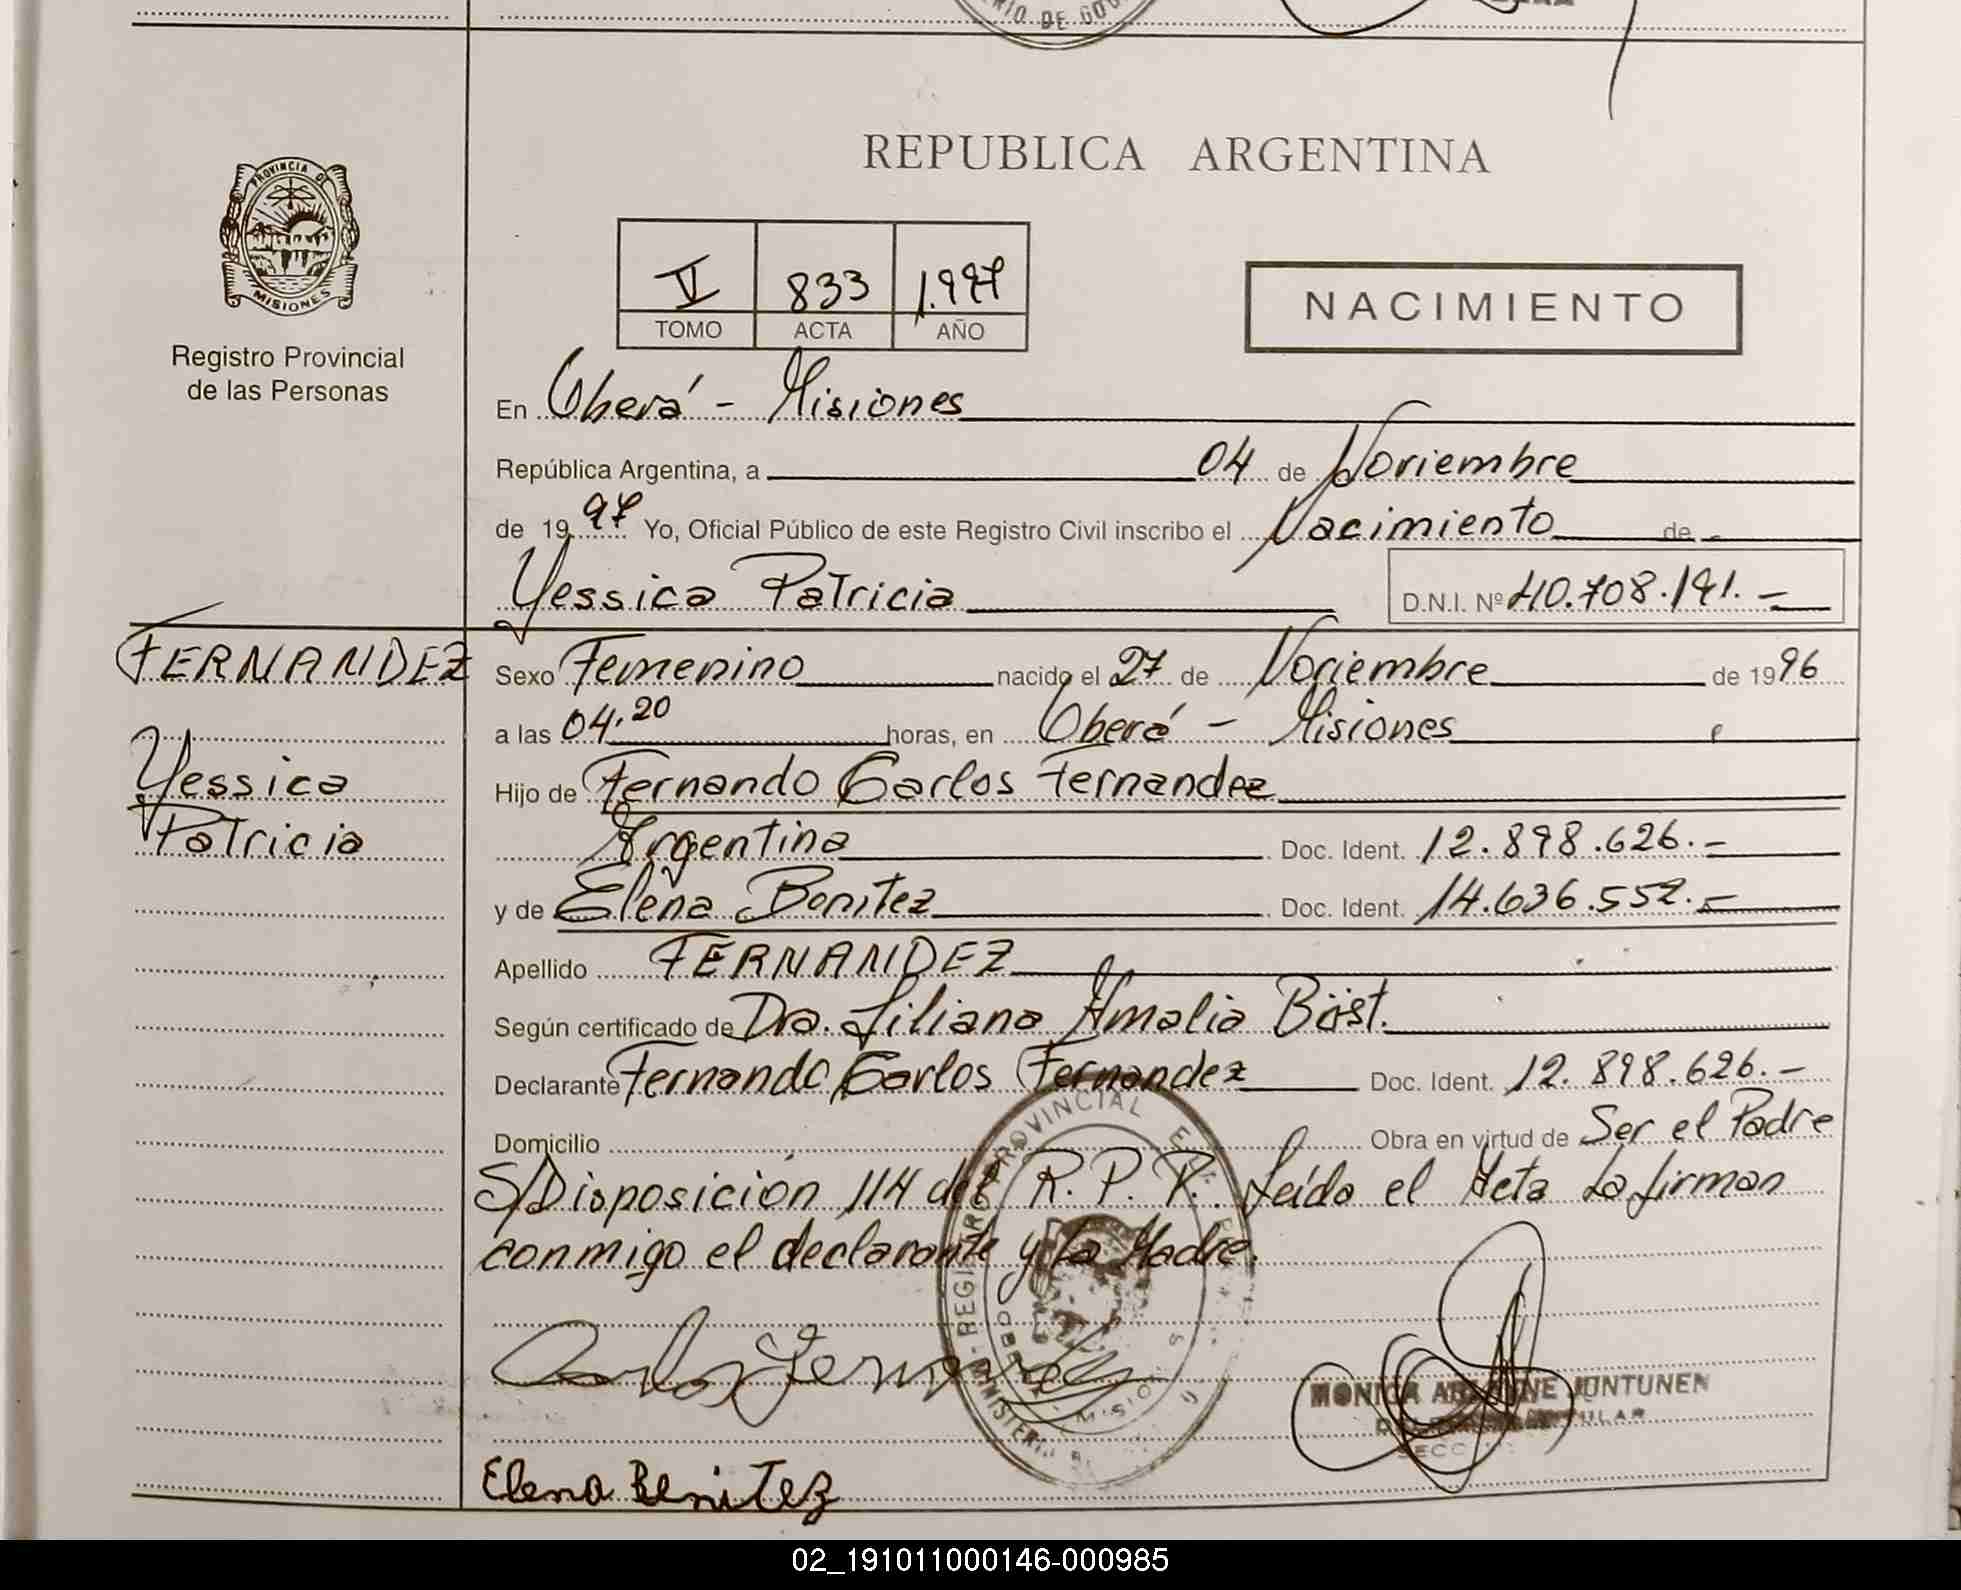 RIO DE GOV
PROVINCIA DE
MISIONES
Registro Provincial
de las Personas
REPUBLICA ARGENTINA
V 833 1.997
TOMO ACTA AÑO
NACIMIENTO
En Oberá - Misiones
República Argentina, a 04 de Noviembre
de 1997 Yo, Oficial Público de este Registro Civil inscribo el Nacimiento de
Yessica Patricia D.N.I. Nº 40.708.191.-
FERNANDEZ
Yessica
Patricia
Sexo Femenino nacido el 27 de Noviembre de 1996
a las 04,20 horas, en Oberá - Misiones
Hijo de Fernando Carlos Fernandez
Argentina Doc. Ident. 12.898.626.-
y de Elena Benitez Doc. Ident. 14.636.552.-
Apellido FERNANDEZ
Según certificado de Dra. Liliana Amalia Böst.
Declarante Fernando Carlos Fernandez Doc. Ident. 12.898.626.-
Domicilio Obra en virtud de Ser el Padre
S/Disposición 114 del R.P.P. Leída el Acta La firman
conmigo el declarante y La Madre.
REGISTRO PROVINCIAL
MINISTERIO
OBERA
MISIONES
Carlos Fernandez
MONICA JUNTUNEN
Elena Benitez
02_191011000146-000985